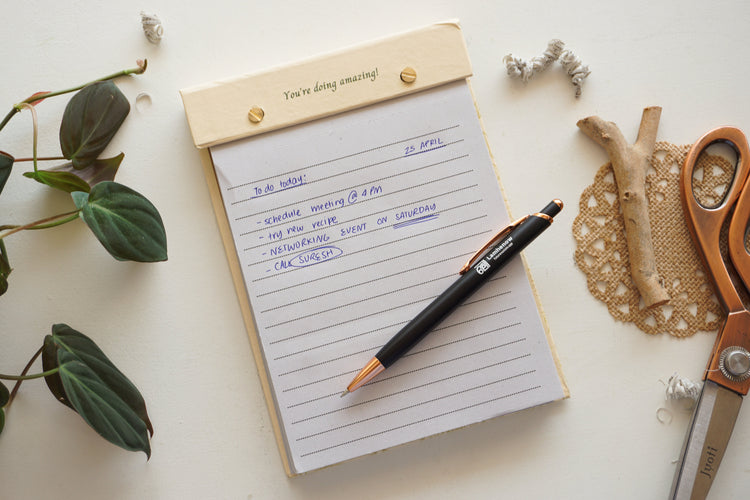 You're doing amazing!
25 APRIL
To do today:
- schedule meeting @ 4 PM
- try new recipe
- NETWORKING EVENT ON SATURDAY
- CALL SURESH
Jyoti